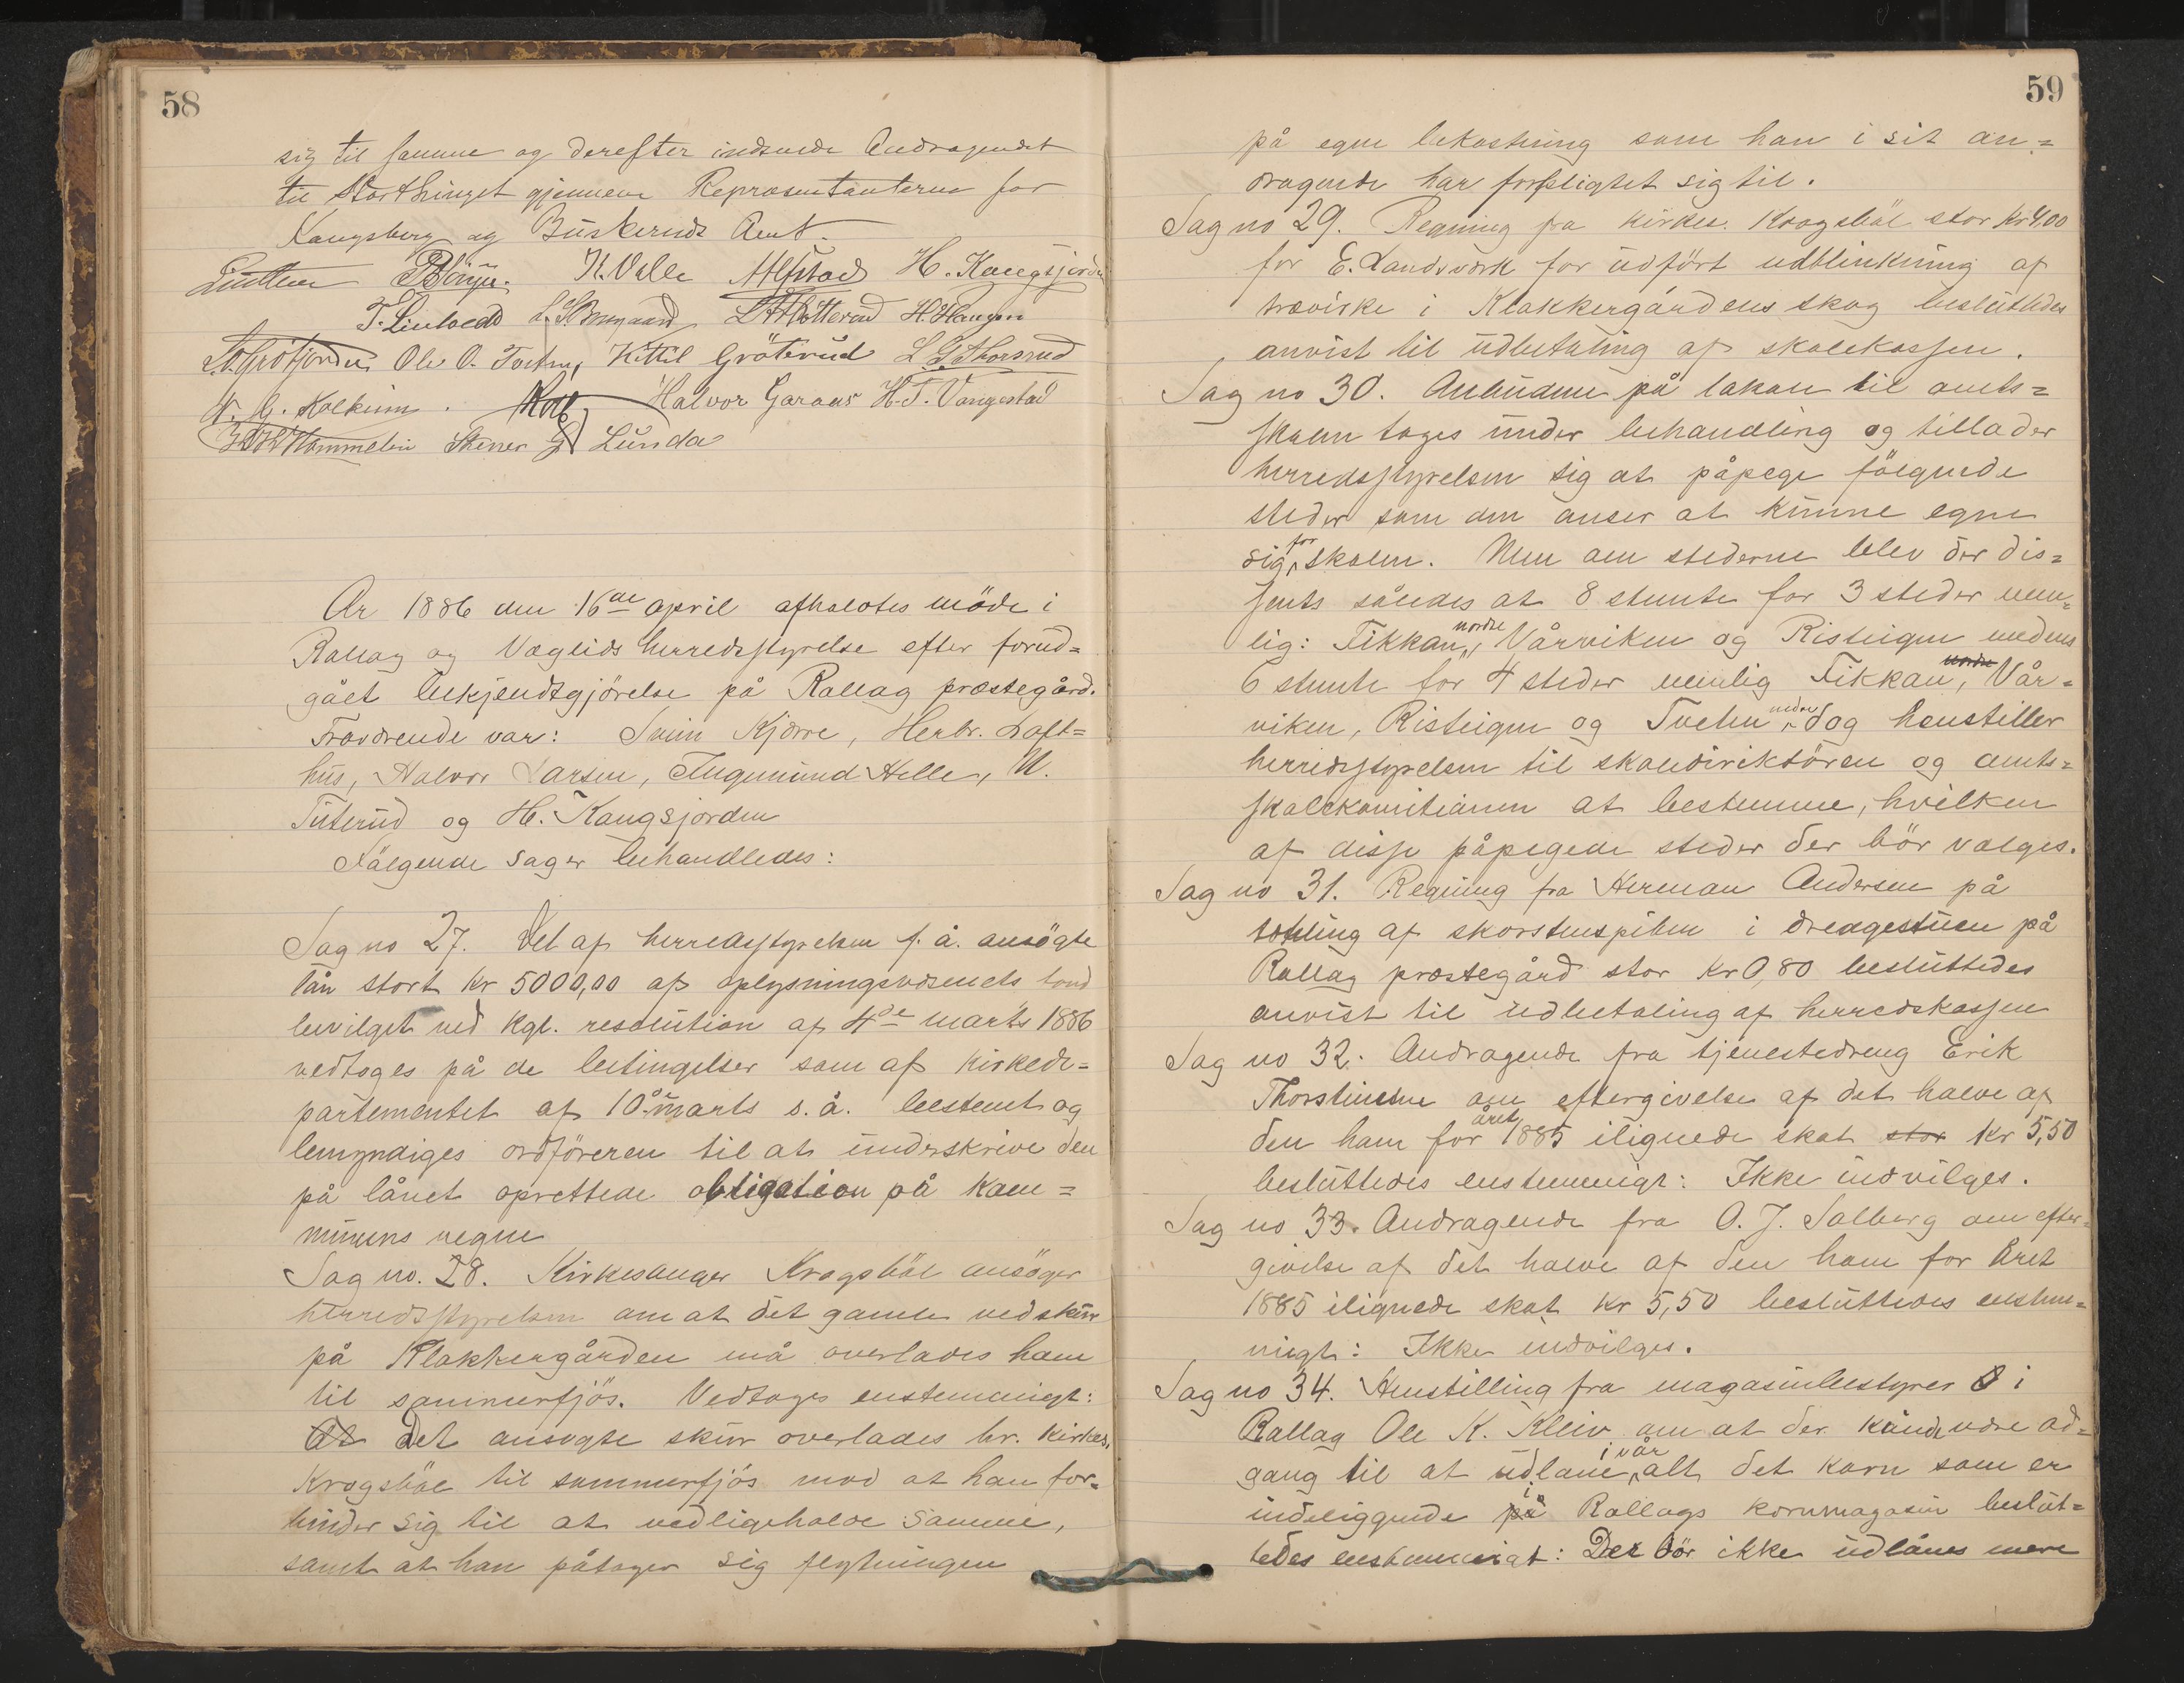 58
sig til samme og derefter indsende Andragendet
til Storthinget gjennem Repræsentanterne for
Kongsberg og Buskeruds Amt.
K. Velle H. Kongsjorden
T. Linloedt H. Haugen
Ole O. Kittil Gröterud L. G. Thorsrud
Halvor Garaas H. T. Vangestad
Stener G Lunda
År 1886 den 16de april afholdtes möde i
Rollag og Veglids herredsstyrelse efter forud=
gået bekjendtgjörelse på Rollag præstegård.
Fraværende var: Svein Kjörre, Herbr. Loft=
hus, Halvor Larsen, Tingmund Helle, N.
Tuterud og H. Kongsjorden
Fölgende sager behandledes:
Sag no 27. Det af herredsstyrelsen f. å. ansögte
lån stort kr 5000,00 af oplysningsvæsenets fond
bevilget ved kgl. resolution af 4de marts 1886
vedtoges på de betingelser som af kirkede=
partementet af 10de marts s. å. bestemt og
bemyndiges ordföreren til at underskrive den
på lånet oprettede obligation på kom=
munens vegne
Sag no. 28. Kirkesanger Krogsböl ansöger
herredsstyrelsen om at det gamle vedskur
på Klokkergården må overlades ham
til sommerfjös. Vedtoges enstemmigt:
At Det ansögte skur overlades hr. kirkes.
Krogsböl til sommerfjös mod at han for=
binder sig til at vedligeholde samme,
samt at han påtager sig flytningen
59
på egen bekostning som han i sit an=
dragende har forpligtet sig til.
Sag no 29. Regning fra kirkes. Krogsböl stor kr 4,00
for E. Landsverk for udfört udblinkning af
trævirke i Klokkergårdens skog besluttedes
anvist til udbetaling af skolekassen.
Sag no 30. Anbudene på lokale til amts=
skolen toges under behandling og tillader
herredsstyrelsen sig at påpege fölgende
steder som den anser at kunne egne
sig for skolen. Men om stederne blev der dis=
sents således at 8 stemte for 3 steder nem=
lig: Fikkan, nordre Vårviken og Risteigen medens
6 stemte for 4 steder nemlig Fikkan, nordre Vår=
viken, Risteigen og Tveten nedre dog henstiller
herredsstyrelsen til skoledirektören og amts=
skolekomiteen at bestemme, hvilken
af disse påpegede steder der bör vælges.
Sag no 31. Regning fra Herman Andersen på
tætning af skorstenspiben i drengestuen på
Rollag præstegård stor kr 0,80 besluttedes
anvist til udbetaling af herredskassen
Sag no 32. Andragende fra tjenestedreng Erik
Thorstensen om eftergivelse af det halve af
den ham for året 1885 ilignede skat stor kr 5,50
besluttedes enstemmigt: Ikke indvilges.
Sag no 33. Andragende fra O. J. Solberg om efter=
givelse af det halve af den ham for året
1885 ilignede skat kr 5,50 besluttedes enstem=
migt: Ikke indvilges.
Sag no 34. Henstilling fra magasinbestyrer O i
Rollag Ole K. Kleiv om at der kunde være ad=
gang til at udlåne i vår alt det korn som er
indeliggende på i Rollags kornmagasin beslut=
tedes enstemmigt: Det bör ikke udlånes mere